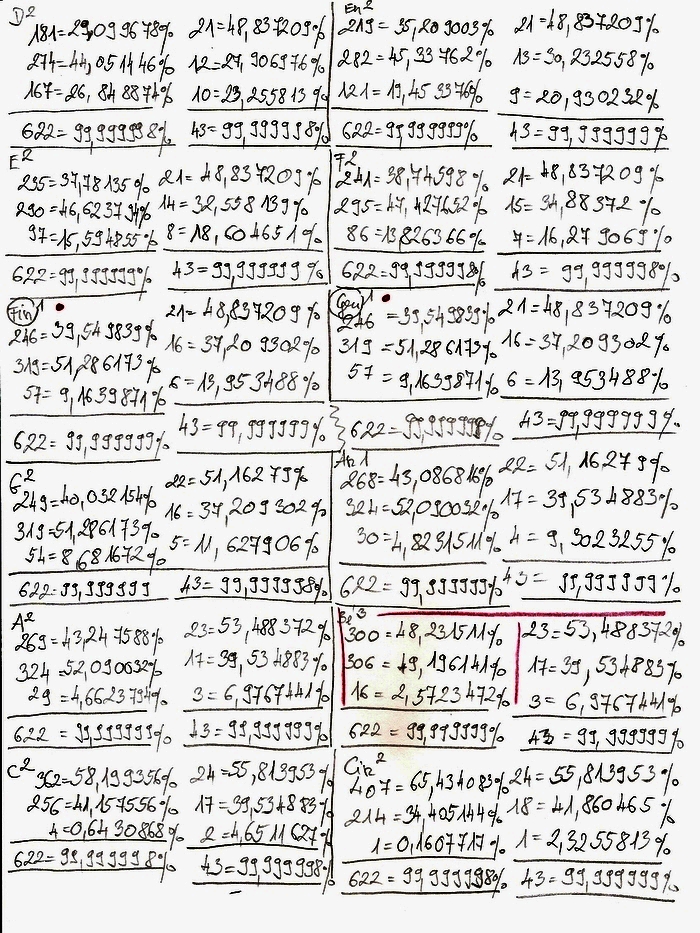 D²
181=29,099678%
274=44,051446%
167=26,848874%
622=99,999998%
21=48,837209%
12=27,906976%
10=23,255813%
43=99,999998%
En²
219=35,209003%
282=45,33762%
121=19,453376%
622=99,999999%
21=48,837209%
13=30,232558%
9=20,930232%
43=99,999999%
E²
235=37,78135%
290=46,623794%
97=15,594855%
622=99,999999%
21=48,837209%
14=32,558139%
8=18,604651%
43=99,999999%
F²
241=38,74598%
295=47,427652%
86=13,826366%
622=99,999998%
21=48,837209%
15=34,88372%
7=16,279069%
43=99,999998%
Fin 1
246=39,549839%
319=51,286173%
57=9,1639871%
622=99,999999%
21=48,837209%
16=37,209302%
6=13,953488%
43=99,999999%
Gou 1
246=39,549839%
319=51,286173%
57=9,1639871%
622=99,999999%
21=48,837209%
16=37,209302%
6=13,953488%
43=99,999999%
G²
249=40,032154%
319=51,286173%
54=8,681672%
622=99,999999
22=51,16279%
16=37,209302%
5=11,627906%
43=99,999998%
An 1
268=43,086816%
324=52,090032%
30=4,8231511%
622=99,999999%
22=51,16279%
17=39,534883%
4=9,3023255%
43=99,999999%
A²
269=43,247588%
324=52,090032%
29=4,6623794%
622=99,999999%
23=53,488372%
17=39,534883%
3=6,9767441%
43=99,999999%
Be'3
300=48,231511%
306=49,196141%
16=2,5723472%
622=99,999999%
23=53,488372%
17=39,534883%
3=6,9767441%
43=99,999999%
C²
362=58,199356%
256=41,157556%
4=0,6430868%
622=99,999998%
24=55,813953%
17=39,534883%
2=4,6511627%
43=99,999998%
Cin²
407=65,434083%
214=34,405144%
1=0,1607717%
622=99,999998%
24=55,813953%
18=41,860465%
1=2,3255813%
43=99,999999%